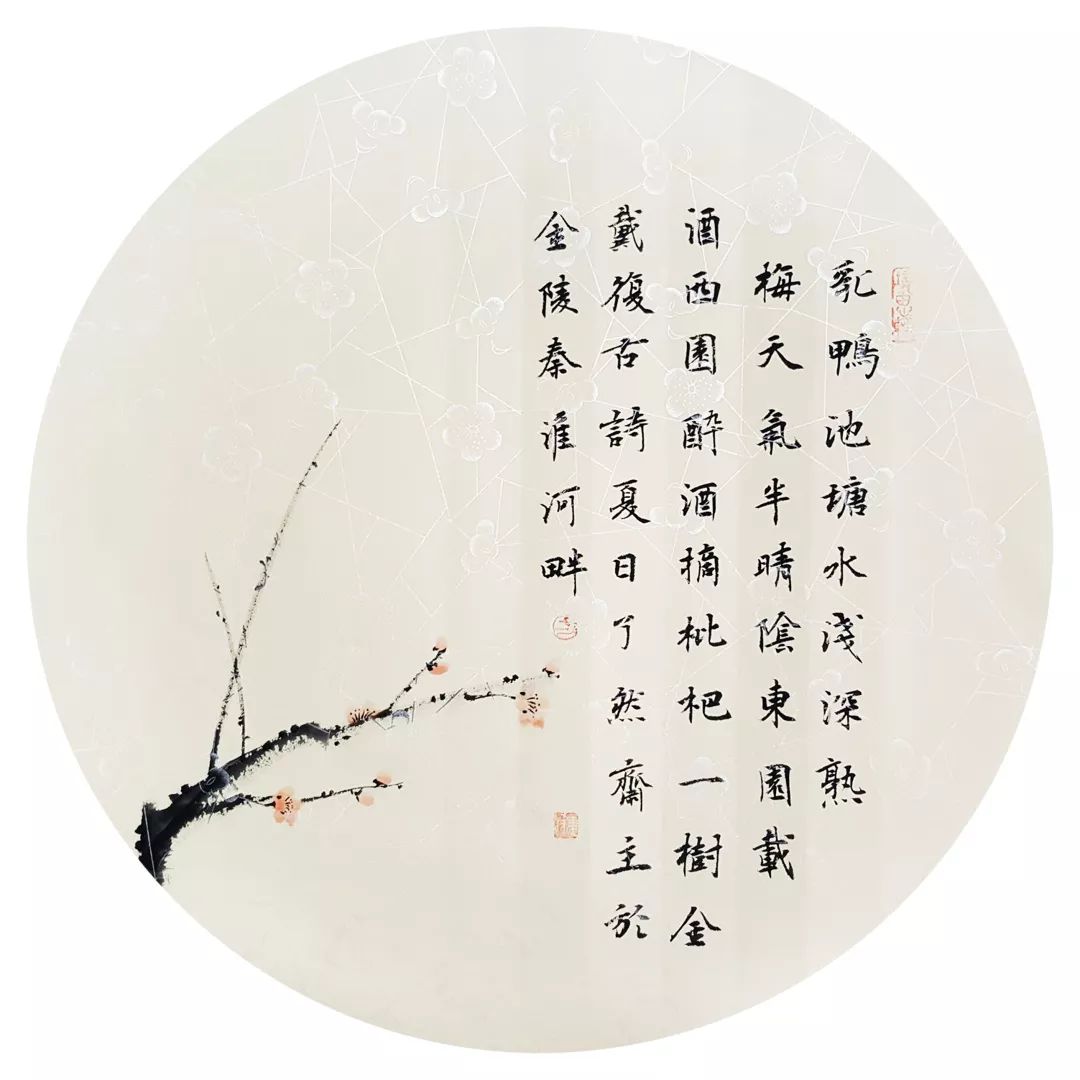 乳鴨池塘水淺深熟
梅天氣半晴陰東園載
酒西園醉酒摘枇杷一樹金
戴復古詩夏日了然齋主於
金陵秦淮河畔